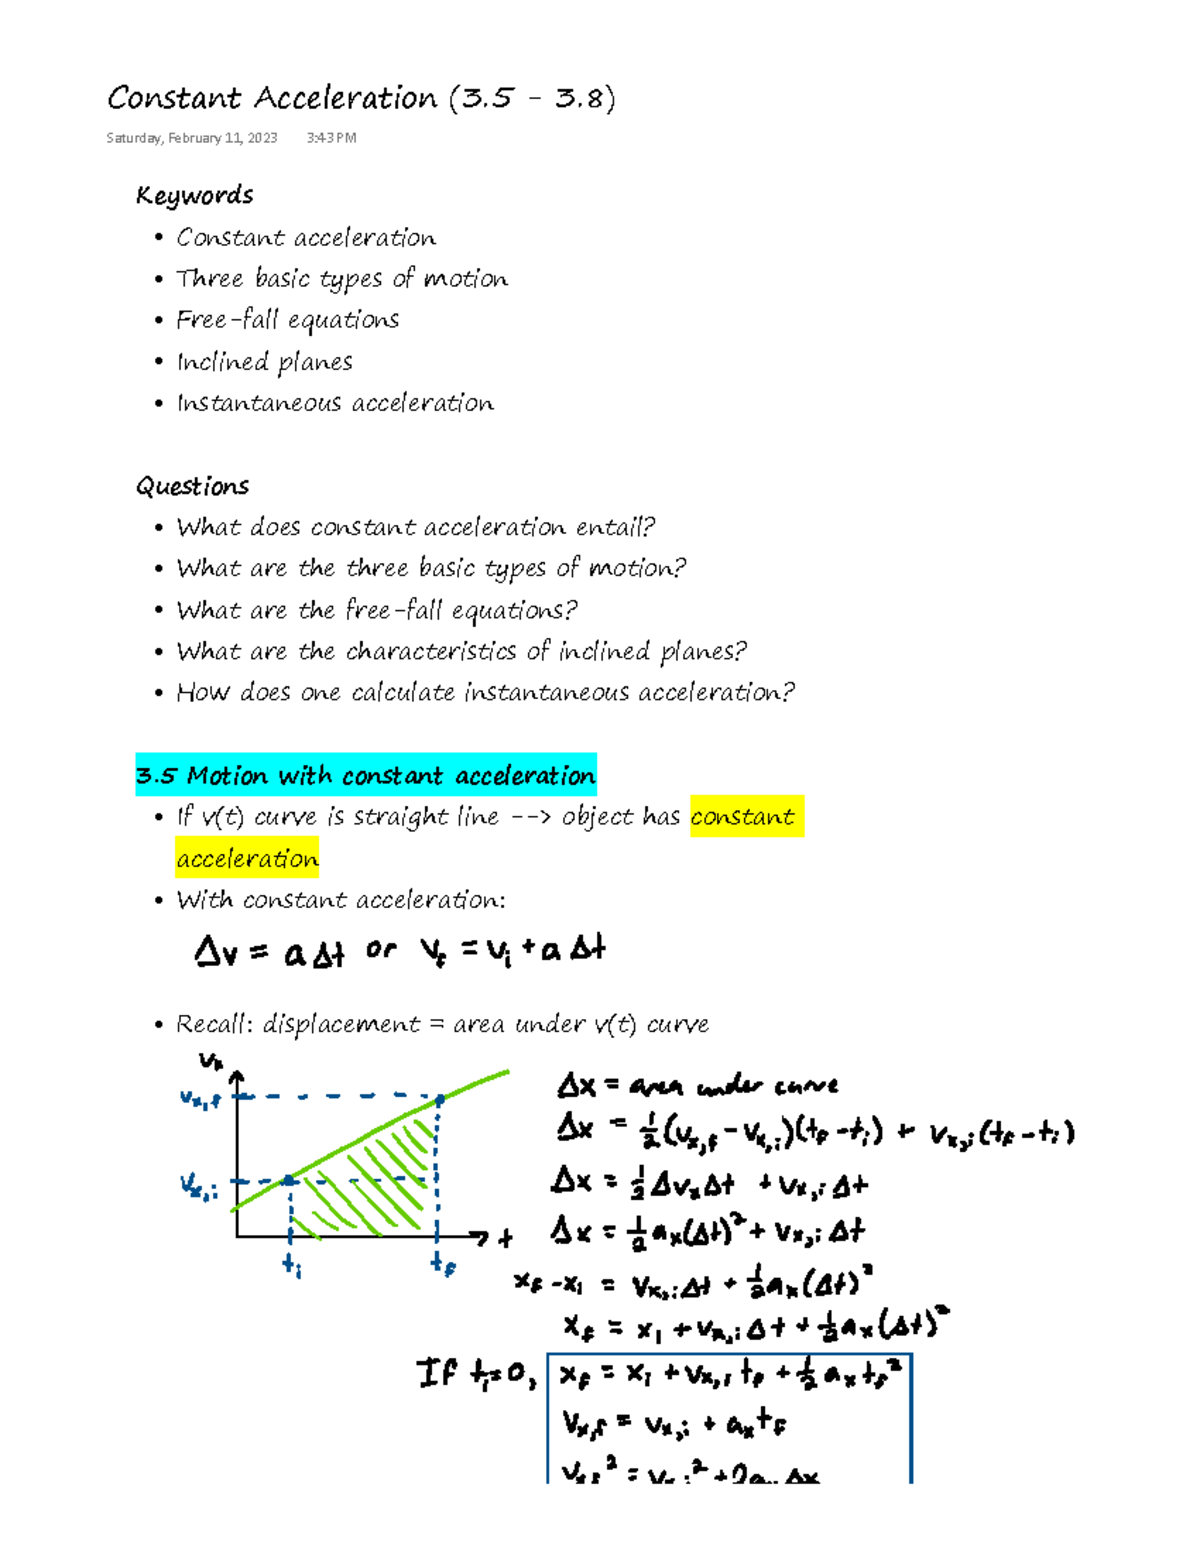 Constant Acceleration (3.5 - 3.8)
Saturday, February 11, 2023 3:43 PM
Keywords
• Constant acceleration
• Three basic types of motion
• Free-fall equations
• Inclined planes
• Instantaneous acceleration
Questions
• What does constant acceleration entail?
• What are the three basic types of motion?
• What are the free-fall equations?
• What are the characteristics of inclined planes?
• How does one calculate instantaneous acceleration?
3.5 Motion with constant acceleration
• If v(t) curve is straight line --> object has constant
acceleration
• With constant acceleration:
Δv = a Δt or v_f = v_i + a Δt
• Recall: displacement = area under v(t) curve
v_x
v_x,f
v_x,i
t_i
t_f
t
Δx = area under curve
Δx = ½(v_x,f - v_x,i)(t_f - t_i) + v_x,i(t_f - t_i)
Δx = ½ Δv_x Δt + v_x,i Δt
Δx = ½ a_x(Δt)² + v_x,i Δt
x_f - x_i = v_x,i Δt + ½ a_x(Δt)²
x_f = x_i + v_x,i Δt + ½ a_x(Δt)²
If t_i = 0, x_f = x_i + v_x,i t_f + ½ a_x t_f²
v_x,f = v_x,i + a_x t_f
v_x,f² = v_x,i² + 2a_x Δx